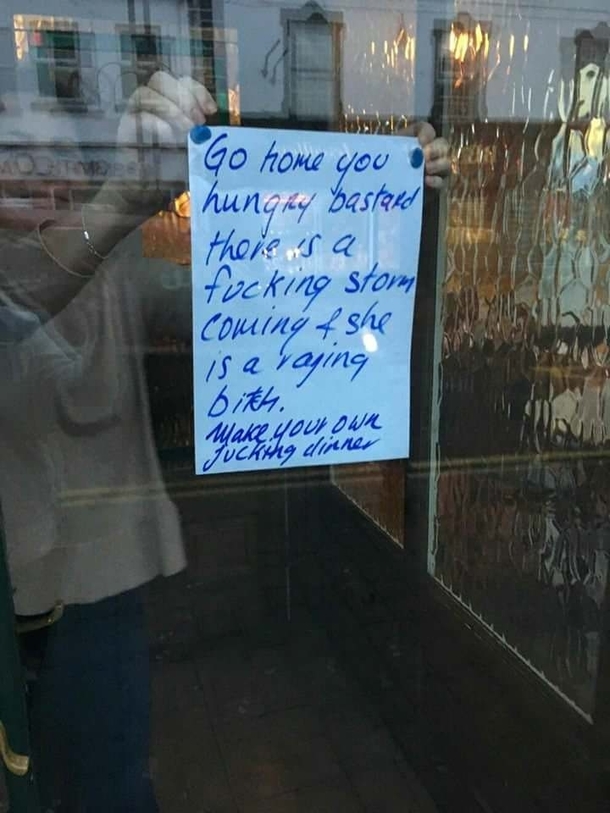 Go home you
hungry bastard
there is a
fucking storm
coming & she
is a raging
bitch.
Make your own
fucking dinner